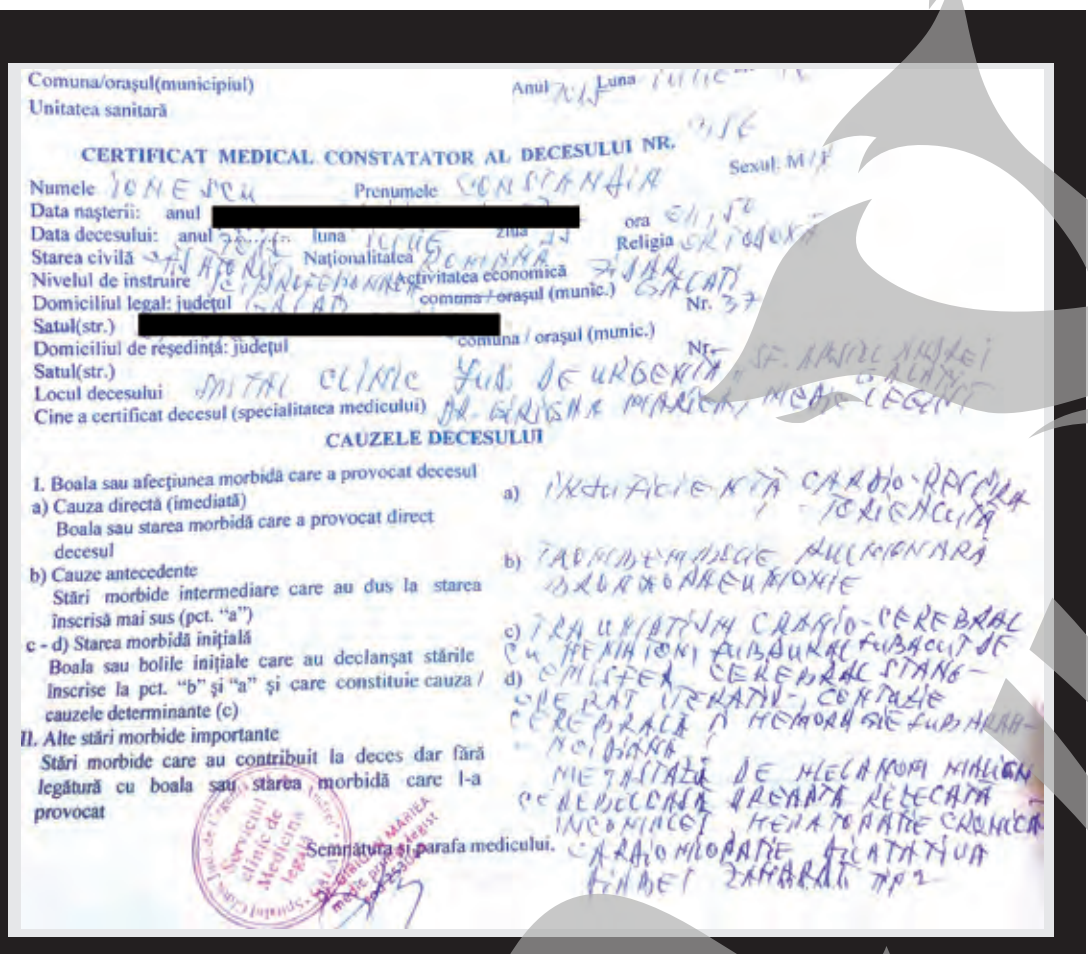 Comuna/orașul(municipiul) Anul Luna iulie
Unitatea sanitară
CERTIFICAT MEDICAL CONSTATATOR AL DECESULUI NR.
Sexul: M/F
Numele IONESCU Prenumele
Data nașterii: anul
ora
Data decesului: anul luna IULIE ziua Religia ORTODOXĂ
Starea civilă Naționalitatea ROMÂNĂ
Nivelul de instruire Activitatea economică
Domiciliul legal: județul GALAȚI comuna / orașul (munic.) GALAȚI
Satul(str.) Nr. 37
Domiciliul de reședință: județul comuna / orașul (munic.)
Satul(str.) Nr.
Locul decesului SPITAL CLINIC JUD. DE URGENȚĂ SF. APOSTOL ANDREI GALAȚI
Cine a certificat decesul (specialitatea medicului) DR. MARICA, MEDIC LEGIST
CAUZELE DECESULUI
I. Boala sau afecțiunea morbidă care a provocat decesul
a) Cauza directă (imediată)
Boala sau starea morbidă care a provocat direct
decesul
b) Cauze antecedente
Stări morbide intermediare care au dus la starea
înscrisă mai sus (pct. “a”)
c - d) Starea morbidă inițială
Boala sau bolile inițiale care au declanșat stările
înscrise la pct. “b” și “a” și care constituie cauza /
cauzele determinante (c)
II. Alte stări morbide importante
Stări morbide care au contribuit la deces dar fără
legătură cu boala sau starea morbidă care l-a
provocat
a) INSUFICIENȚĂ CARDIO-RESPIRA
b) PULMONARĂ
BRONHOPNEUMONIE
c) TRAUMATISM CRANIO-CEREBRAL
CU HEMATOM SUBDURAL SUBACUT DE
d) EMISFER CEREBRAL STÂNG -
OPERAT ITERATIV, CONTUZIE
CEREBRALĂ ȘI HEMORAGIE SUBARAH-
NOIDIANĂ
METASTAZĂ DE MELANOM MALIGN
CEREBELOASĂ OPERATĂ REZECATĂ
INCOMPLET, HEPATOPATIE CRONICĂ
CARDIOMIOPATIE DILATATIVĂ
DIABET ZAHARAT TIP 2
Semnătura și parafa medicului.
Serviciul
clinic de
Medicina
legală
MARICA
medic primar legist